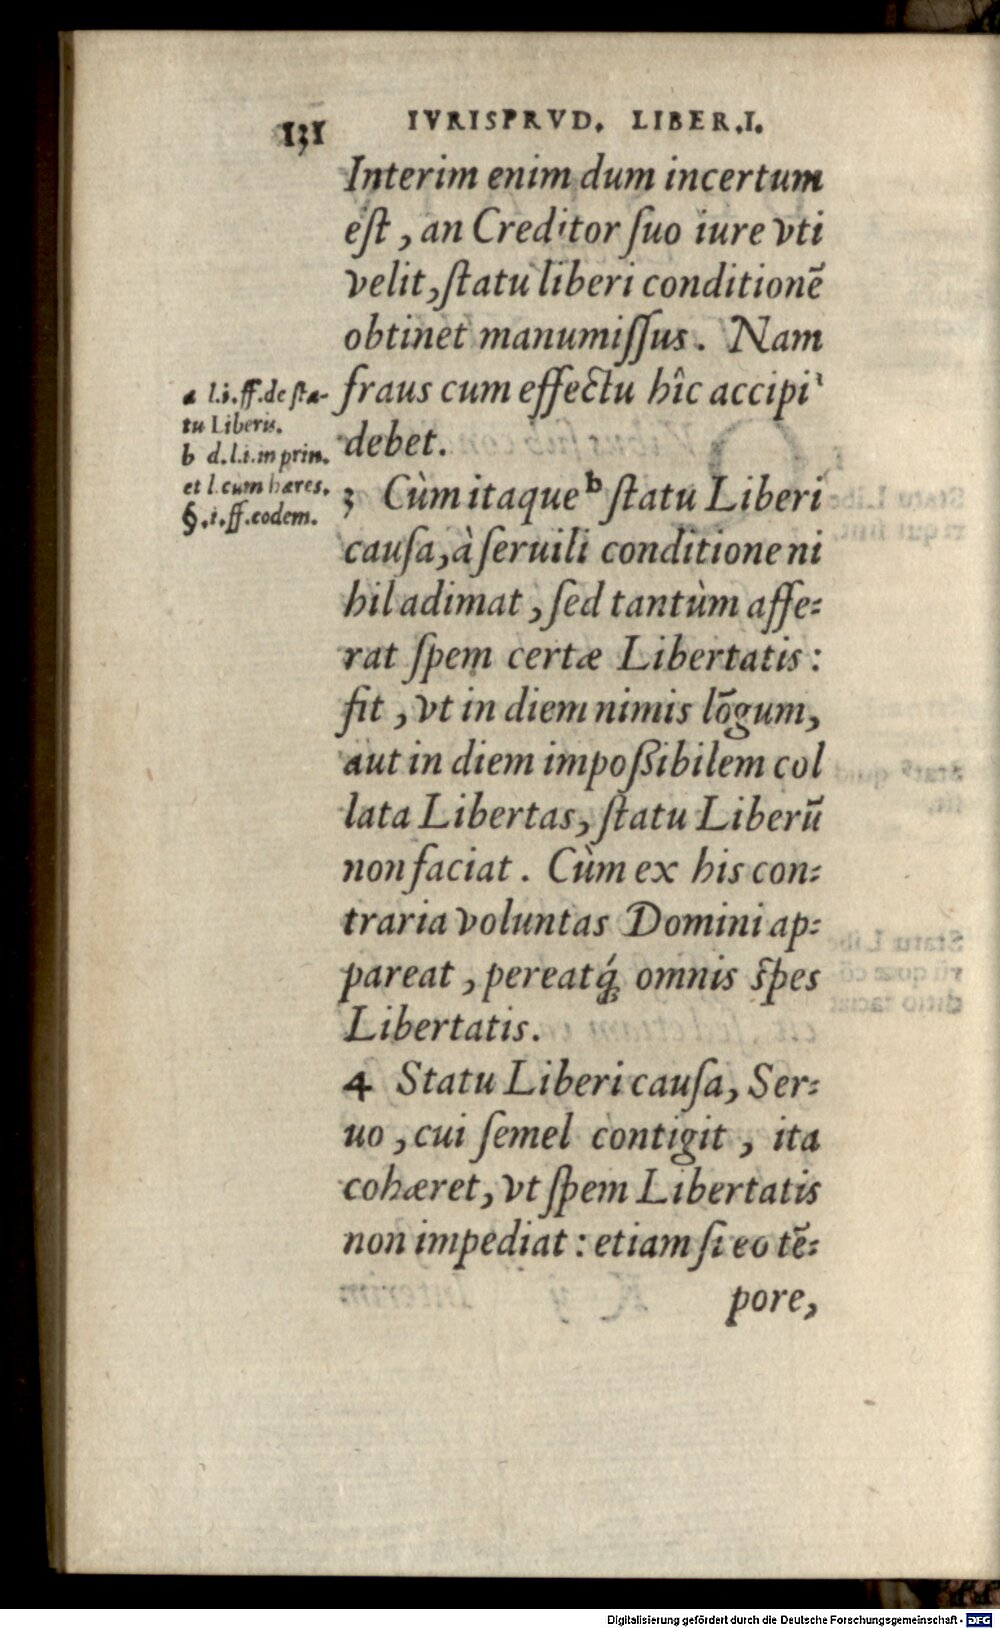 131 IVRISPRVD. LIBER.I.
Interim enim dum incertum
eſt, an Creditor ſuo iure vti
velit, ſtatu liberi conditionē
obtinet manumiſſus. Nam
fraus cum effectu hîc accipi
debet.
a l.i.ff.de ſta-
tu Liberis.
b d.l.i.in prin.
et l.cum hæres.
§.i.ff.eodem.
3 Cùm itaque b ſtatu Liberi
cauſa, à ſeruili conditione ni
hil adimat, ſed tantùm affe-
rat ſpem certæ Libertatis:
fit, vt in diem nimis lōgum,
aut in diem impoßibilem col
lata Libertas, ſtatu Liberū
non faciat. Cùm ex his con-
traria voluntas Domini ap-
pareat, pereatq́; omnis ſpes
Libertatis.
4 Statu Liberi cauſa, Ser-
uo, cui ſemel contigit, ita
cohæret, vt ſpem Libertatis
non impediat: etiam ſi eo tē-
pore,
Digitalisierung gefördert durch die Deutsche Forschungsgemeinschaft - DFG